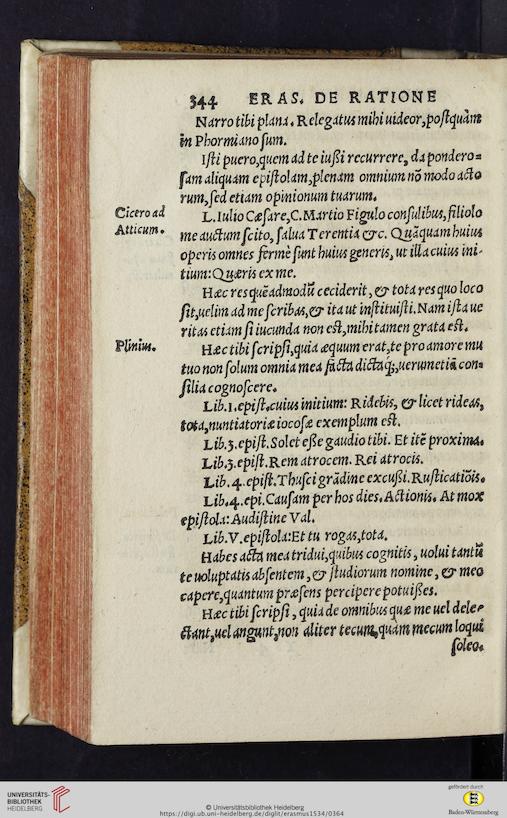 344 ERAS. DE RATIONE
Narro tibi plana. Relegatus mihi uideor, postquàm
in Phormiano sum.
Isti puero, quem ad te iußi recurrere, da pondero=
sam aliquam epistolam, plenam omnium nō modo acto
rum, sed etiam opinionum tuarum.
Cicero ad
Atticum.
L. Iulio Cæsare, C. Martio Figulo consulibus, filiolo
me auctum scito, salua Terentia &c. Quāquam huius
operis omnes fermè sunt huius generis, ut illa cuius ini-
tium: Quæris ex me.
Hæc res quēadmodū ceciderit, & tota res quo loco
sit, uelim ad me scribas, & ita ut instituisti. Nam ista ue
ritas etiam si iucunda non est, mihi tamen grata est.
Plinius.
Hæc tibi scripsi, quia æquum erat, te pro amore mu
tuo non solum omnia mea facta dictaq;, uerumetiā con=
silia cognoscere.
Lib. 1. epist. cuius initium: Ridebis, & licet rideas,
tota, nuntiatoriæ iocosæ exemplum est.
Lib. 3. epist. Solet eße gaudio tibi. Et itē proxima.
Lib. 3. epist. Rem atrocem. Rei atrocis.
Lib. 4. epist. Thusci grādine excußi. Rusticatiōis.
Lib. 4. epi. Causam per hos dies. Actionis. At mox
epistola: Audistine Val.
Lib. V. epistola: Et tu rogas, tota.
Habes acta mea tridui, quibus cognitis, uolui tantū
te uoluptatis absentem, & studiorum nomine, & meo
capere, quantum præsens percipere potuißes.
Hæc tibi scripsi, quia de omnibus quæ me uel dele-
ctant, uel angunt, non aliter tecum, quàm mecum loqui
soleo.
UNIVERSITÄTS-
BIBLIOTHEK
HEIDELBERG
© Universitätsbibliothek Heidelberg
https://digi.ub.uni-heidelberg.de/diglit/erasmus1534/0364
gefördert durch
Baden-Württemberg